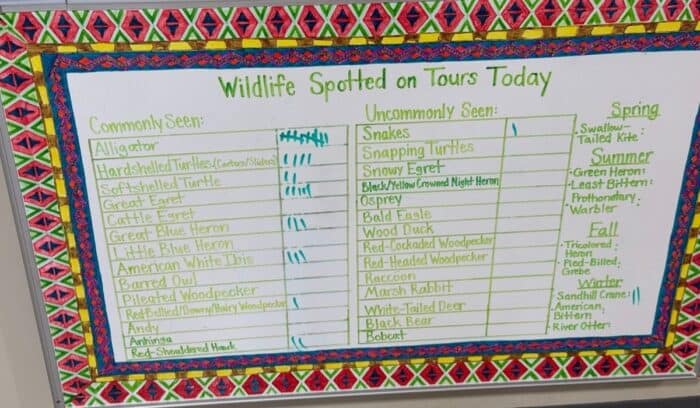 Wildlife Spotted on Tours Today
Commonly Seen:
Alligator
Hardshelled Turtles (Cooters/Sliders)
Softshelled Turtle
Great Egret
Cattle Egret
Great Blue Heron
Little Blue Heron
American White Ibis
Barred Owl
Pileated Woodpecker
Red Bellied/Downy/Hairy Woodpecker
Andy
Anhinga
Red-Shouldered Hawk
Uncommonly Seen:
Snakes
Snapping Turtles
Snowy Egret
Black/Yellow Crowned Night Heron
Osprey
Bald Eagle
Wood Duck
Red-Cockaded Woodpecker
Red-Headed Woodpecker
Raccoon
Marsh Rabbit
White-Tailed Deer
Black Bear
Bobcat
Spring
• Swallow-
Tailed Kite:
Summer
• Green Heron:
• Least Bittern:
Prothonotary:
• Warbler
Fall
• Tricolored:
Heron
• Pied-Billed:
Grebe
Winter
Sandhill Crane:
• American:
Bittern
• River Otter: